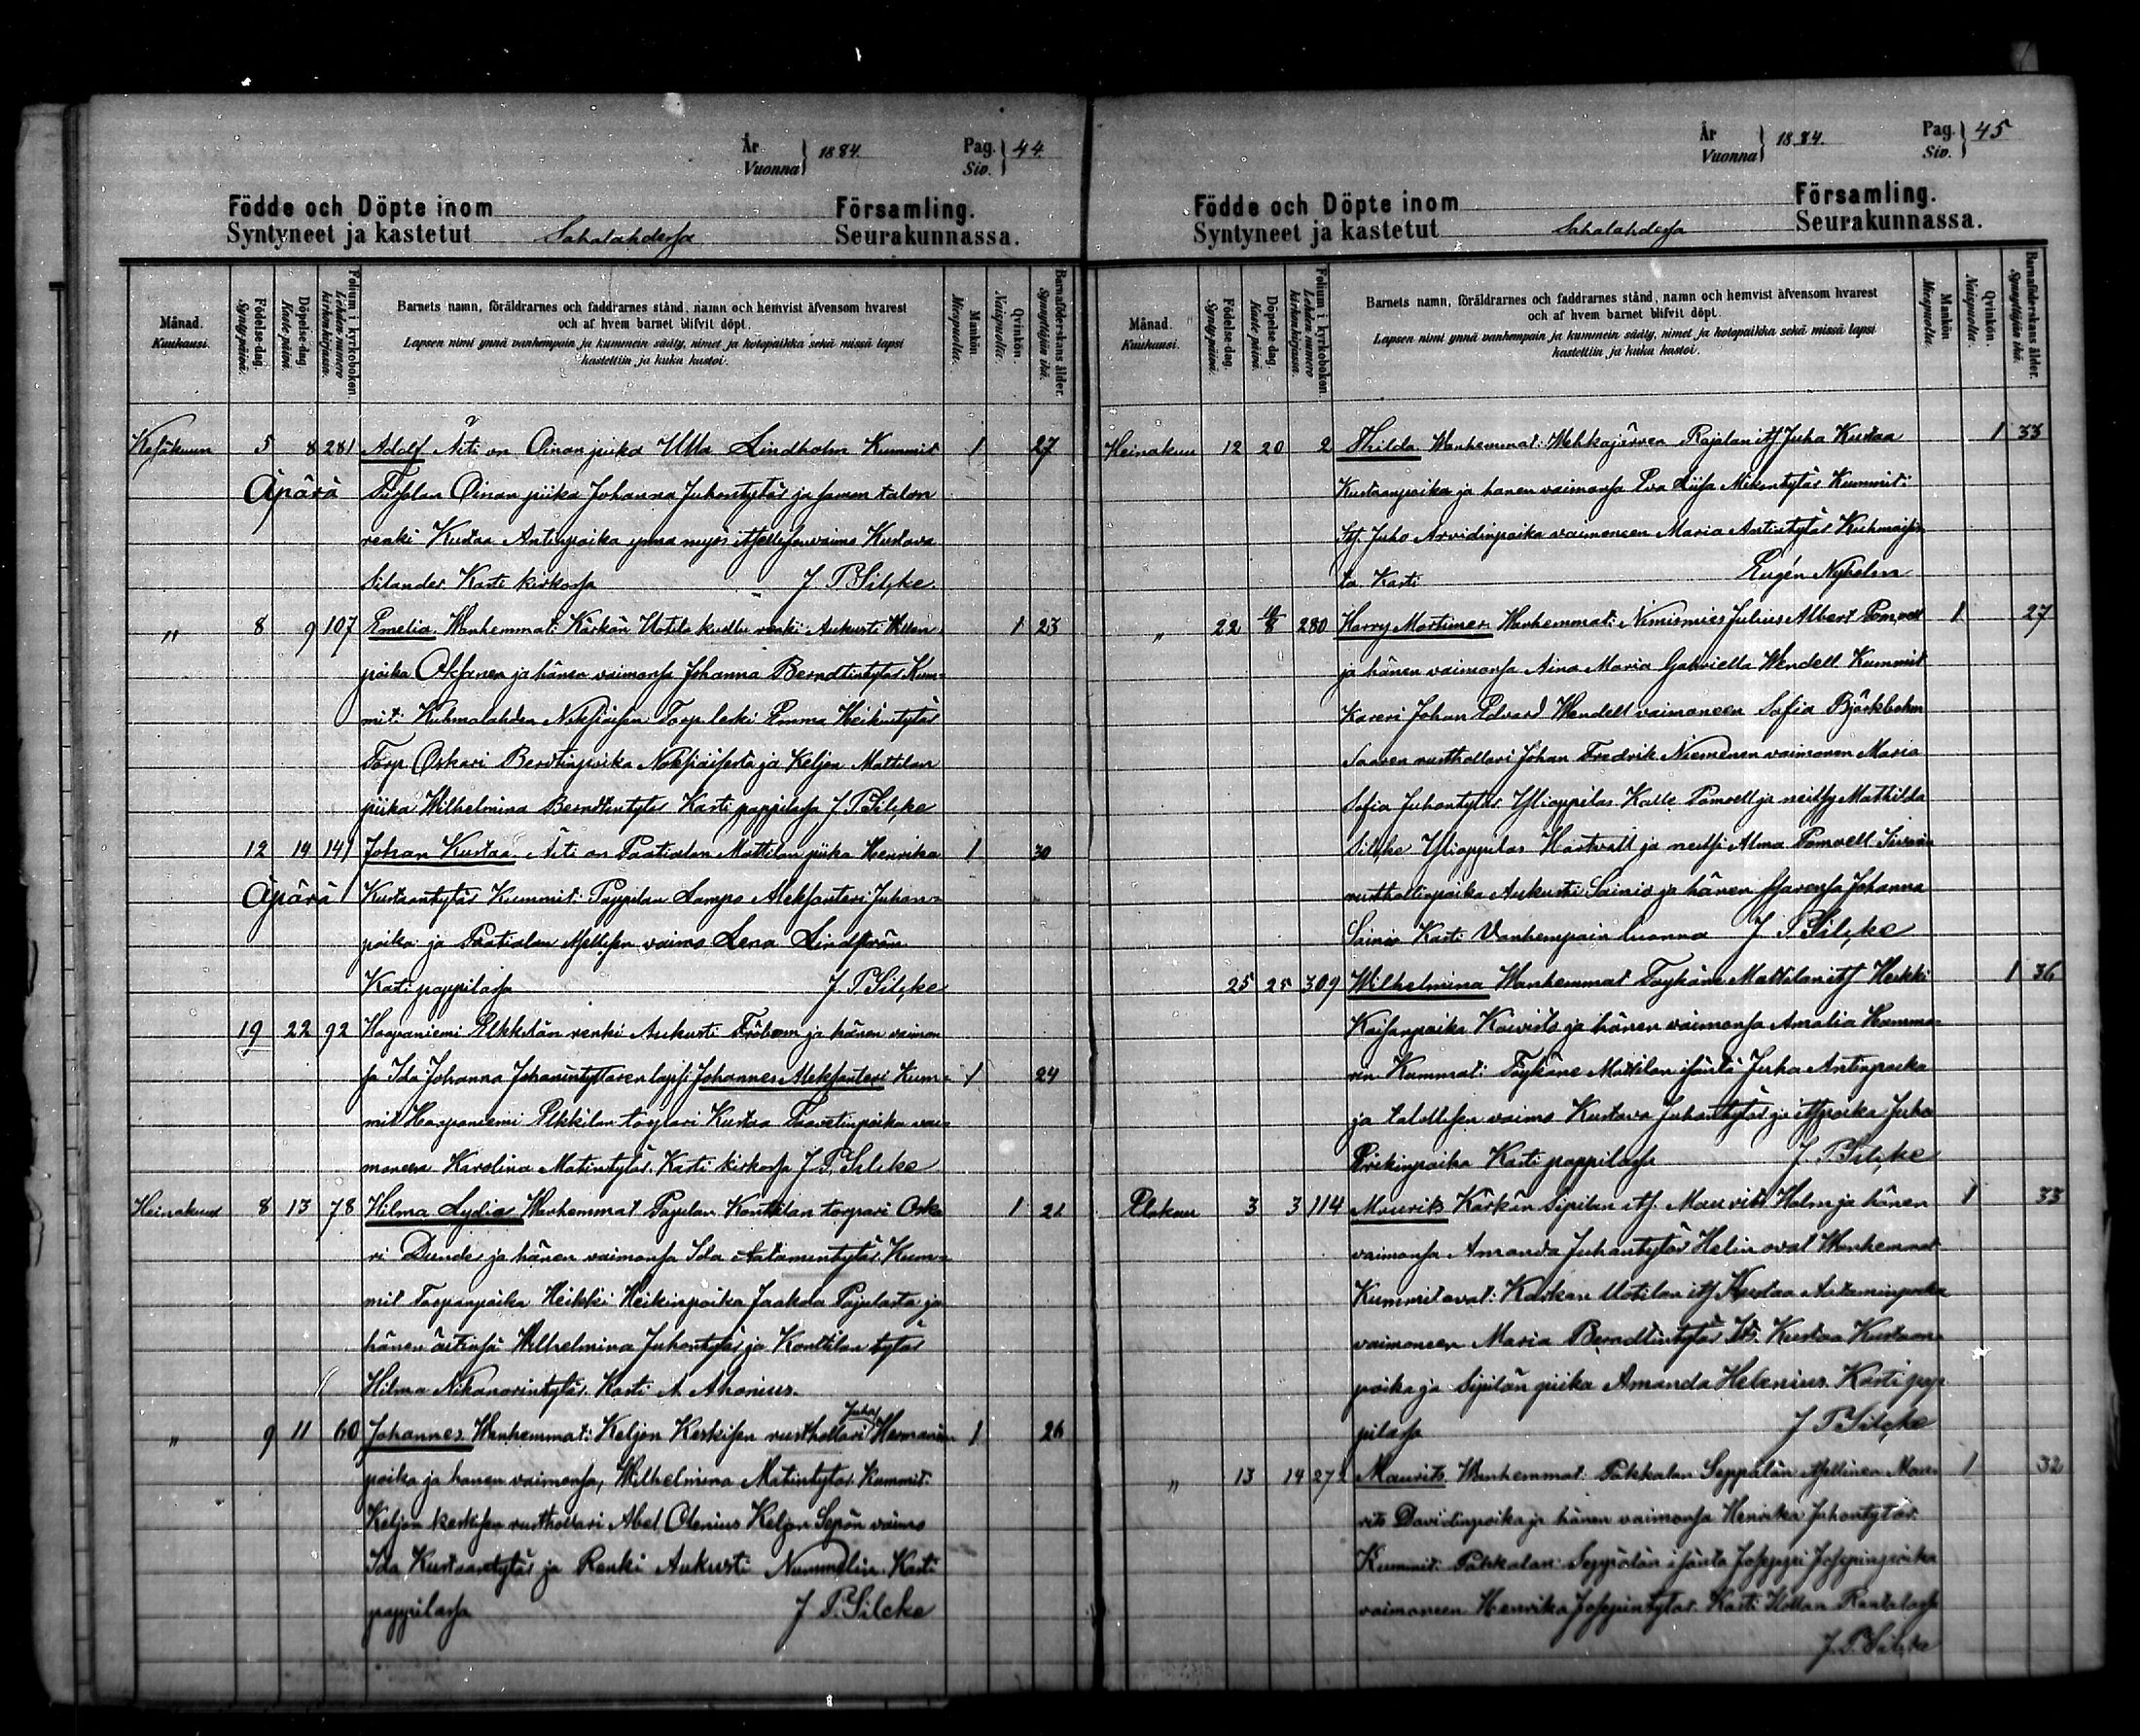 År
Vuonna } 1884.
Pag.
Siv. } 44.
Födde och Döpte inom Församling.
Syntyneet ja kastetut Sahalahdessa Seurakunnassa.
Månad.
Kuukausi.
Födelse-dag.
Syntypäivä.
Döpelse-dag.
Kaste päivä.
Folium i kyrkobokon.
Lehden numero kirkonkirjassa.
Barnets namn, föräldrarnes och faddrarnes stånd, namn och hemvist äfvensom hvarest
och af hvem barnet blifvit döpt.
Lapsen nimi ynnä vanhempain ja kummein sääty, nimet ja kotopaikka sekä missä lapsi
kastettiin ja kuka kastoi.
Mankön
Miespuolta.
Qvinkön.
Naispuolta.
Barnaföderskans ålder.
Synnyttäjän ikä.
Kesäkuun 5 8 281 Adolf Äiti on Oinan piika Ulla Lindholm Kummit 1 27
Äpärä Oinan piika Johanna Juhontytär ja saman talon
renki Kustaa Antinpoika ynnä myös itsellisen vaimo Kustava
Silander. Kasti kirkossa J. P. Silcke.
" 8 9 107 Emelia. Wanhemmat: Kärkän Uotila kudlu renki Aukusti Willen 1 23
poika Oksanen ja hänen vaimonsa Johanna Berndtintytär Kum-
mit: Kuhmalahden Torp. leski Emma Heikintytär
Torp. Oskari Berdtinpoika ja Keljon Mattilan
piika Wilhelmina Berndtintytär Kasti pappilassa J. P. Silcke
12 14 141 Johan Kustaa Äiti on Paatialan Mattilan piika Henrika 1 30
Äpärä Kustaantytär Kummit: Pappilan Lampo Aleksanteri Juhan-
poika ja Paatialan itsellisen vaimo Lena Lindström
Kasti pappilassa J. P. Silcke
19 22 92 Haapaniemi Elkkilän renki Aukusti Fribom ja hänen vaimon
sa Ida Johanna Johanintyttaren lapsi Johannes Aleksanteri Kum- 1 24
mit Haapaniemi Elkkilan torpari Kustaa Taavetinpoika vai-
moneen Karolina Matintytär. Kasti kirkossa J. P. Silcke
Heinakuu 8 13 78 Hilma Lydia Wanhemmat Pajulan Konttilan torpari Oska 1 21
ri Dunder ja hänen vaimonsa Ida Aatamintytär. Kum-
mit Torparipoika Heikki Heikinpoika Jaakola Pajulasta ja
hänen äitinsä Wilhelmina Juhontytär ja Konttilan tytär
Hilma Nikanorintytär. Kasti A. Ahonius.
" 9 11 60 Johannes. Wanhemmat: Keljon Keskisen rusthollari Juha Hermanin 1 26
poika ja hanen vaimonsa, Wilhelmina Matintytar. Kummit:
Keljon keskisen rusthollari Abel Olenius Keljon Sepän vaimo
Ida Kustaantytär ja Renki Aukusti Nummelin. Kasti
pappilassa J. P. Silcke
År
Vuonna } 1884.
Pag.
Siv. } 45
Födde och Döpte inom Församling.
Syntyneet ja kastetut Sahalahdessa Seurakunnassa.
Månad.
Kuukausi.
Födelse-dag.
Syntypäivä.
Döpelse-dag.
Kaste päivä.
Folium i kyrkobokon.
Lehden numero kirkonkirjassa.
Barnets namn, föräldrarnes och faddrarnes stånd, namn och hemvist äfvensom hvarest
och af hvem barnet blifvit döpt.
Lapsen nimi ynnä vanhempain ja kummein sääty, nimet ja kotopaikka sekä missä lapsi
kastettiin ja kuka kastoi.
Mankön
Miespuolta.
Qvinkön.
Naispuolta.
Barnaföderskans ålder.
Synnyttäjän ikä.
Heinakuu 12 20 2 Thilda. Wanhemmat: Wehkajärven Rajalan its Juha Kustaa 1 33
Kustaanpoika ja hanen vaimonsa Eva Liisa Mikontytär Kummit:
Its. Juho Arvidinpoika vaimoneen Maria Antintytär Kuhmais-
ta Kasti Eugén Nyholm
" 22 10/8 280 Harry Mortimer. Wanhemmat: Nimismies Julius Albert Pomoell 1 27
ja hänen vaimonsa Aina Maria Gabriella Wendell Kummit
Johan Edvard Wendell vaimoneen Sofia Björkbohm
Saaren rusthollari Johan Fredrik Nieminen vaimoneen Maria
Sofia Juhontytär. Ylioppilas Kalle Pomoell ja neitsy Mathilda
Silcke Ylioppilas Hartvall ja neitsi Alma Pomoell
rusthollinpoika Aukusti Sainio ja hänen sisarensa Johanna
Sainio Kasti Vanhempain luonna J. P. Silcke
25 25 309 Wilhelmina Wanhemmat Töykäne Mattilan its Heikki 1 36
Kaisanpoika Koivisto ja hänen vaimonsa Amalia Hamma-
rin Kummat: Töykäne Mattilan isäntä Juha Antinpoika
ja talollisen vaimo Kustava Juhantytär ja its.poika Juha
Erikinpoika Kasti pappilassa J. P. Silcke
Elokuu 3 3 114 Maurits Kärkän Sipilan its. Maurits Holm ja hänen 1 33
vaimonsa Amanda Juhantytär Helin ovat Wanhemmat
Kummit ovat: Karkan Uotilan its Kustaa Aataminpoika
vaimoneen Maria Berndtintytär Its. Kustaa Kustaan-
poika ja Sipilän piika Amanda Helenius. Kasti pap
pilassa J. P. Silcke
" 13 14 272 Maurits. Wanhemmat: Pakkalan Seppälän itsellinen Mau- 1 32
rits Davidinpoika ja hänen vaimonsa Henrika Juhontytär.
Kummit: Pakkalan Seppälän isäntä Joseppi Josepinpoika
vaimoneen Henrika Josepintytar. Kasti Rantalassa
J. P. Silcke